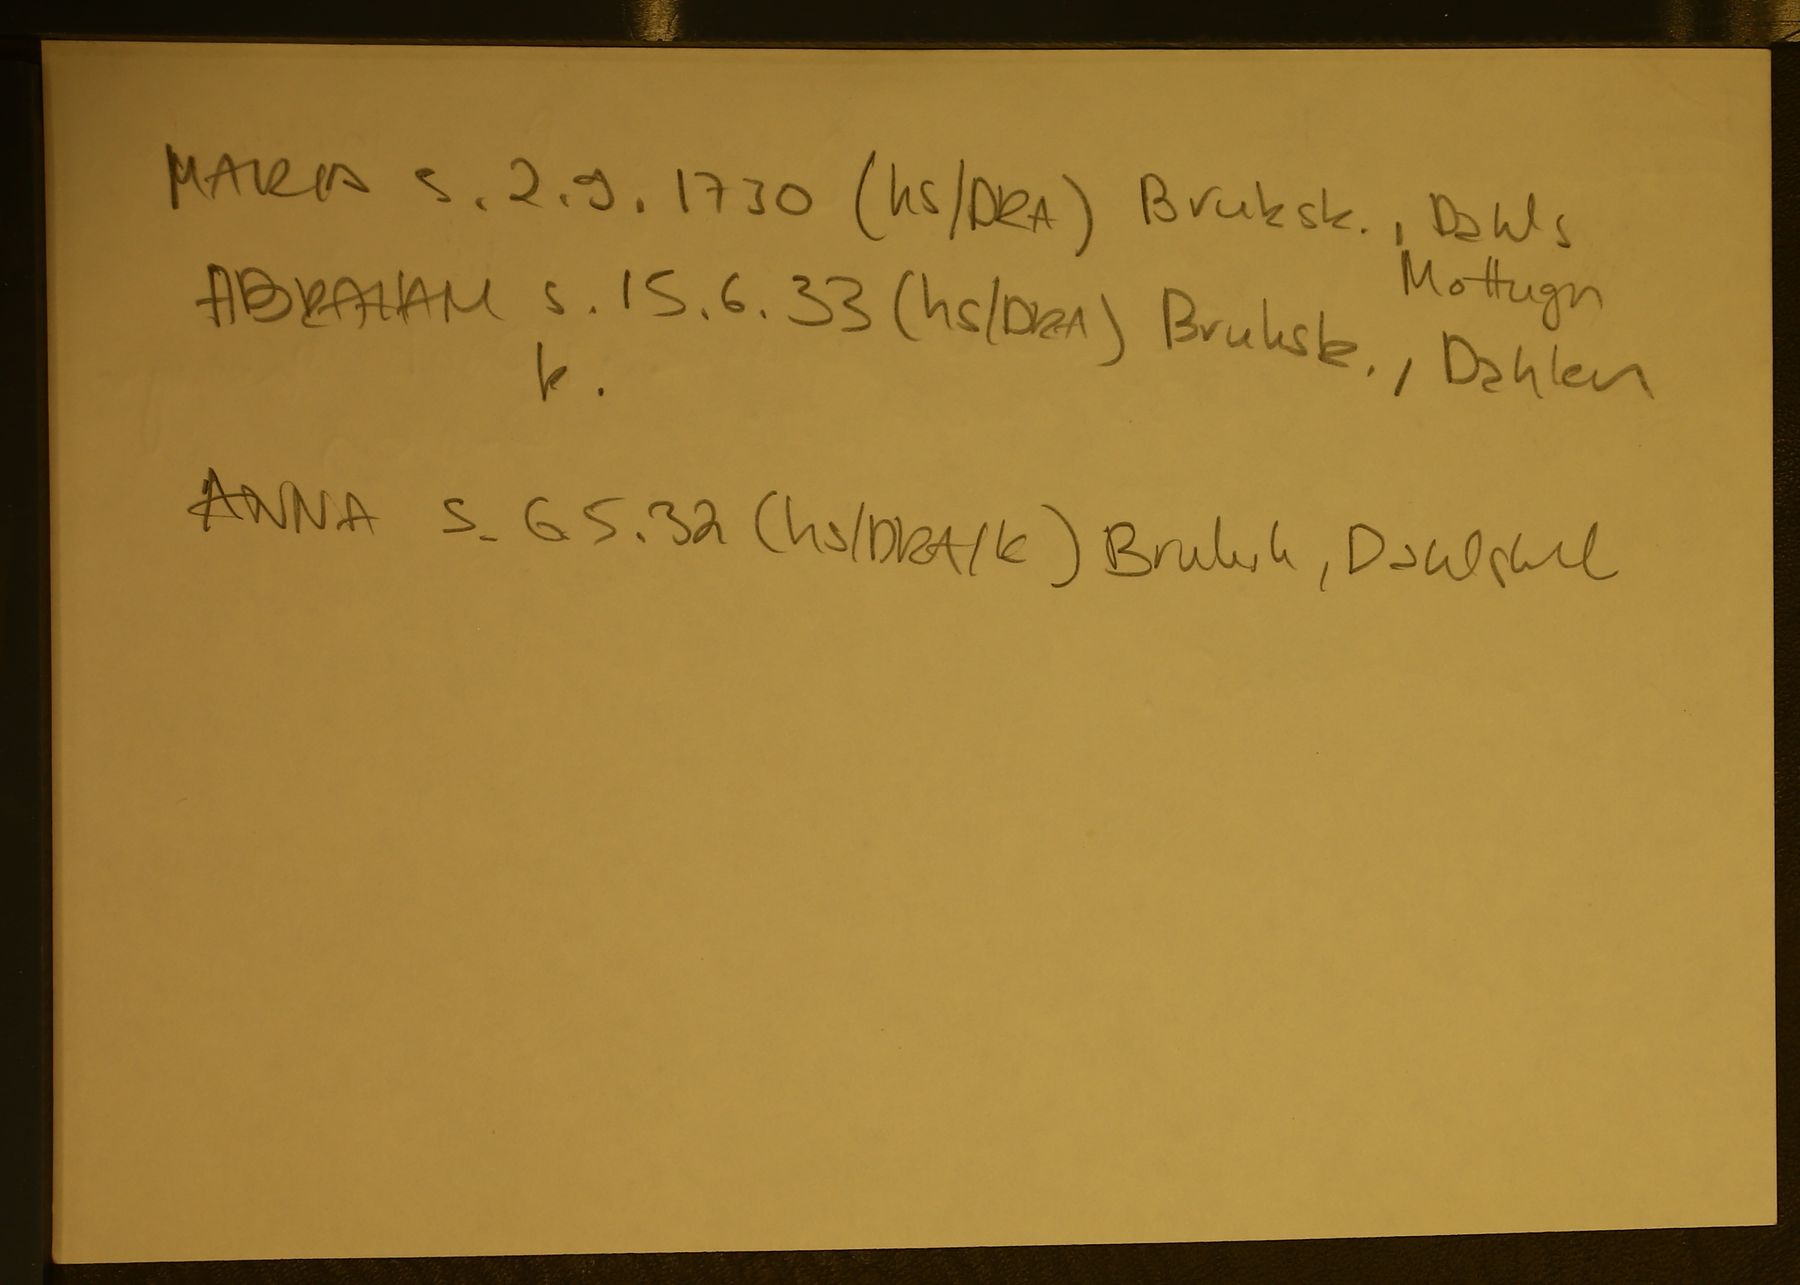 MARIA s. 2.9. 1730 (hs/DRA) Bruksk., Dahls
Mottugn
ABRAHAM s. 15.6.33 (hs/DRA) Bruksk., Dahlen
k.
ANNA s. 6 5.32 (hs/DRA/k)